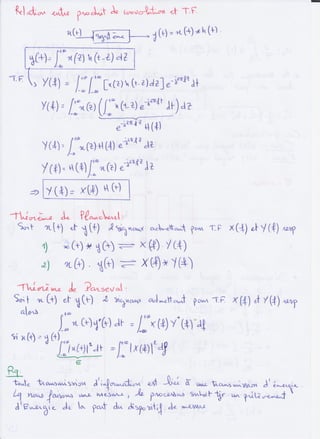 Relation entre produit de convolution et T.F.
x(t) → Système → y(t) = x(t) * h(t).
y(t) = ∫_{-∞}^{+∞} x(z) h(t-z) dz
T.F ↳ Y(f) = ∫_{-∞}^{+∞} ∫_{-∞}^{+∞} [x(z) h(t-z) dz] e^{-j2πft} dt
Y(f) = ∫_{-∞}^{+∞} x(z) (∫_{-∞}^{+∞} h(t-z) e^{-j2πft} dt) dz
e^{-j2πfz} H(f)
Y(f) = ∫_{-∞}^{+∞} x(z) H(f) e^{-j2πfz} dz
Y(f) = H(f) ∫_{-∞}^{+∞} x(z) e^{-j2πfz} dz
⇒ Y(f) = X(f) H(f)
Théorème de Plancherel :
Soit x(t) et y(t) 2 signaux admettant pour T.F X(f) et Y(f) resp
1) x(t) * y(t) ⇌ X(f) . Y(f)
2) x(t) . y(t) ⇌ X(f) * Y(f)
Théorème de Parseval :
Soit x(t) et y(t) 2 signaux admettant pour T.F X(f) et Y(f) resp
alors ∫_{-∞}^{+∞} x(t) y*(t) dt = ∫_{-∞}^{+∞} X(f) Y*(f) df
Si x(t) = y(t)
∫_{-∞}^{+∞} |x(t)|² dt = ∫_{-∞}^{+∞} |X(f)|² df
E
Rq
toute transmission d'information est liée à une transmission d'énergie
Lq nous faisons une mesure, le processus subit tjr un prélèvement
d'Energie de la part du dispositif de mesure